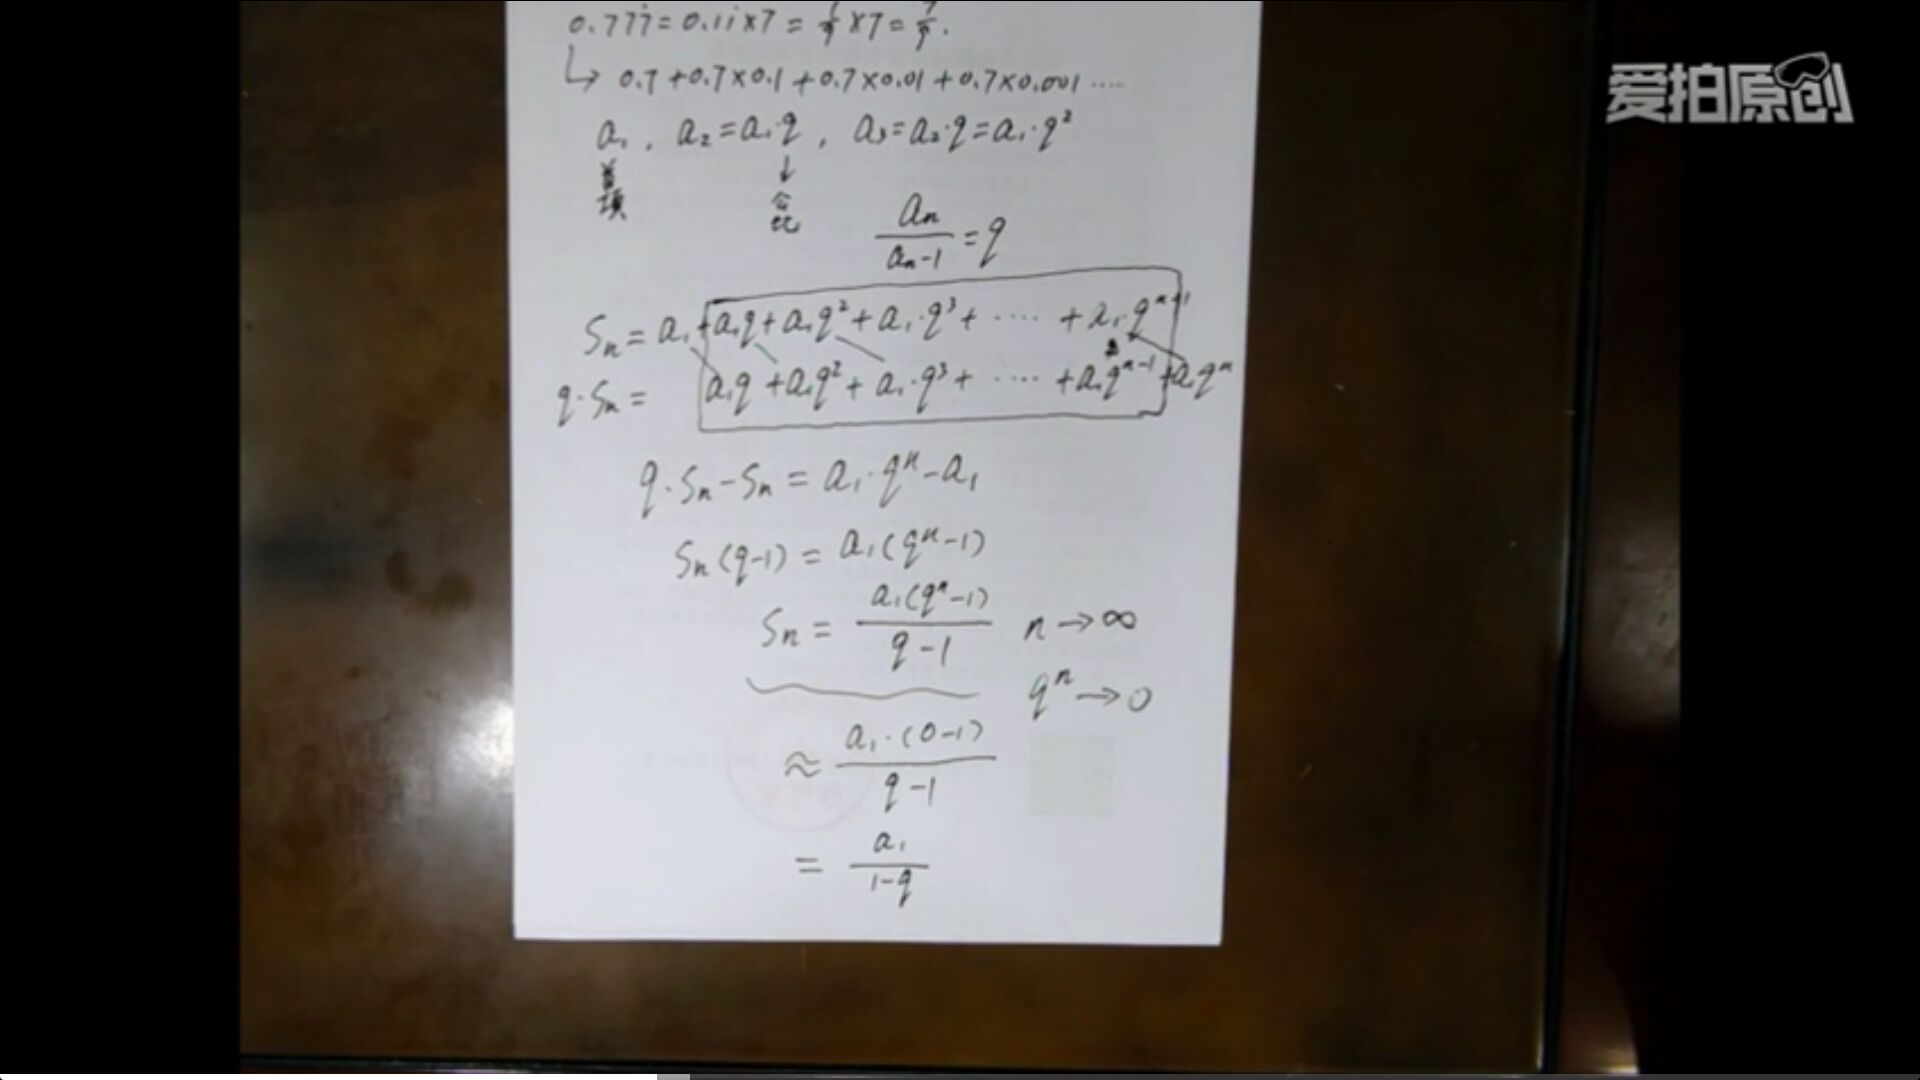 0.777̇=0.11i̇×7=1/9×7=7/9.
↳ 0.7+0.7×0.1+0.7×0.01+0.7×0.001……
a₁, a₂=a₁·q, a₃=a₂·q=a₁·q²
首项 ↓公比
aₙ/aₙ₋₁=q
Sₙ=a₁+a₁q+a₁q²+a₁·q³+……+a₁·qⁿ⁻¹
q·Sₙ=a₁q+a₁q²+a₁·q³+……+a₁qⁿ⁻¹+a₁qⁿ
q·Sₙ-Sₙ=a₁·qⁿ-a₁
Sₙ(q-1)=a₁(qⁿ-1)
Sₙ=a₁(qⁿ-1)/(q-1) n→∞
qⁿ→0
≈a₁·(0-1)/(q-1)
=a₁/(1-q)
爱拍原创